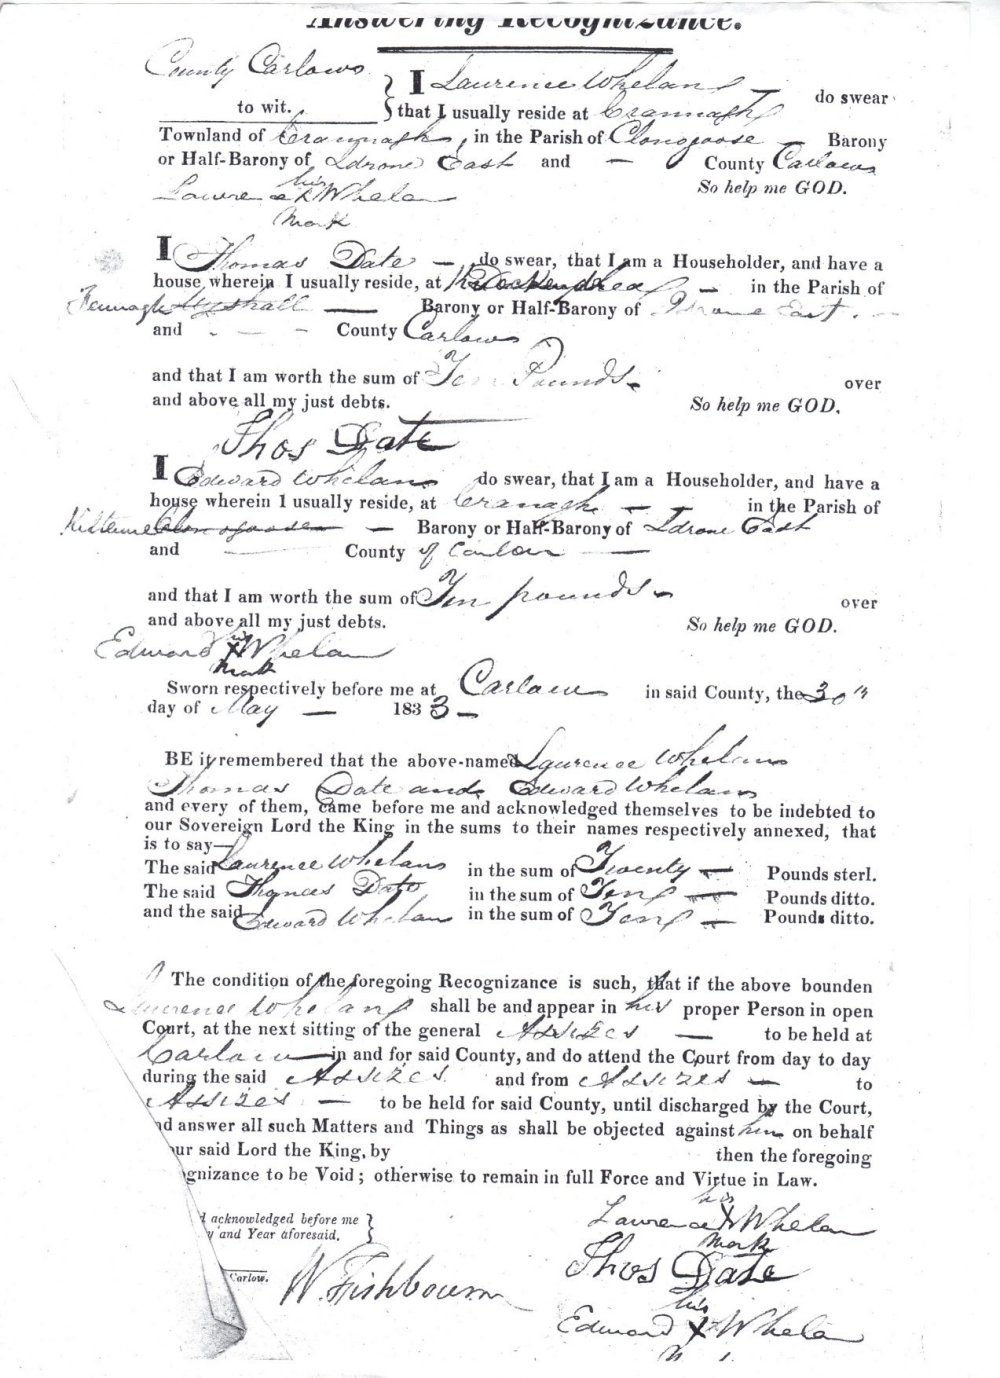 Answering Recognizance.
County Carlow
to wit.
I Laurence Whelan do swear
that I usually reside at Crannagh
Townland of Crannagh, in the Parish of Clonygoose Barony
or Half-Barony of Idrone East and — County Carlow
So help me GOD.
his
Laurence X Whelan
Mark
I Thomas Date — do swear, that I am a Householder, and have a
house wherein I usually reside, at in the Parish of
Fennagh Myshall — Barony or Half-Barony of Idrone East. —
and - — - County Carlow
and that I am worth the sum of Ten Pounds - over
and above all my just debts. So help me GOD.
Thos Date
I Edward Whelan do swear, that I am a Householder, and have a
house wherein I usually reside, at Cranagh — - in the Parish of
Clonygoose — Barony or Half-Barony of Idrone East
and — County of Carlow —
and that I am worth the sum of Ten pounds - over
and above all my just debts. So help me GOD.
his
Edward X Whelan
Mark
Sworn respectively before me at Carlow in said County, the 30th
day of May — 1833 —
BE it remembered that the above-named Laurence Whelan
Thomas Date and Edward Whelan
and every of them, came before me and acknowledged themselves to be indebted to
our Sovereign Lord the King in the sums to their names respectively annexed, that
is to say—
The said Laurence Whelan in the sum of Twenty — Pounds sterl.
The said Thomas Date in the sum of Ten — Pounds ditto.
and the said Edward Whelan in the sum of Ten — Pounds ditto.
The condition of the foregoing Recognizance is such, that if the above bounden
Laurence Whelan shall be and appear in his proper Person in open
Court, at the next sitting of the general Assizes — to be held at
Carlow — in and for said County, and do attend the Court from day to day
during the said Assizes and from Assizes — to
Assizes — to be held for said County, until discharged by the Court,
nd answer all such Matters and Things as shall be objected against him on behalf
ur said Lord the King, by then the foregoing
gnizance to be Void; otherwise to remain in full Force and Virtue in Law.
his
Laurence X Whelan
Mark
d acknowledged before me
y and Year aforesaid.
Thos Date
Carlow.
W. Fishbourn
his
Edward X Whelan